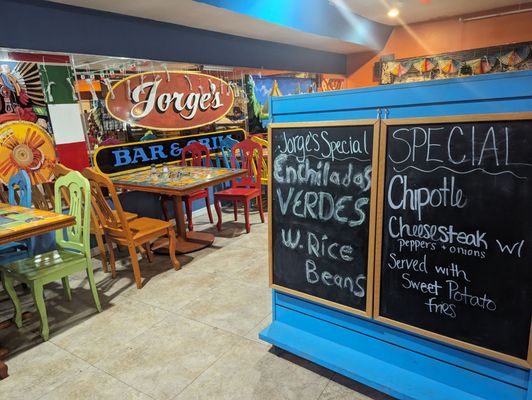 Jorge's
BAR & GRILL
Jorge's Special
Enchiladas
VERDES
W. Rice
Beans
SPECIAL
Chipotle
Cheesesteak w/
peppers + onions
Served with
Sweet Potato
fries